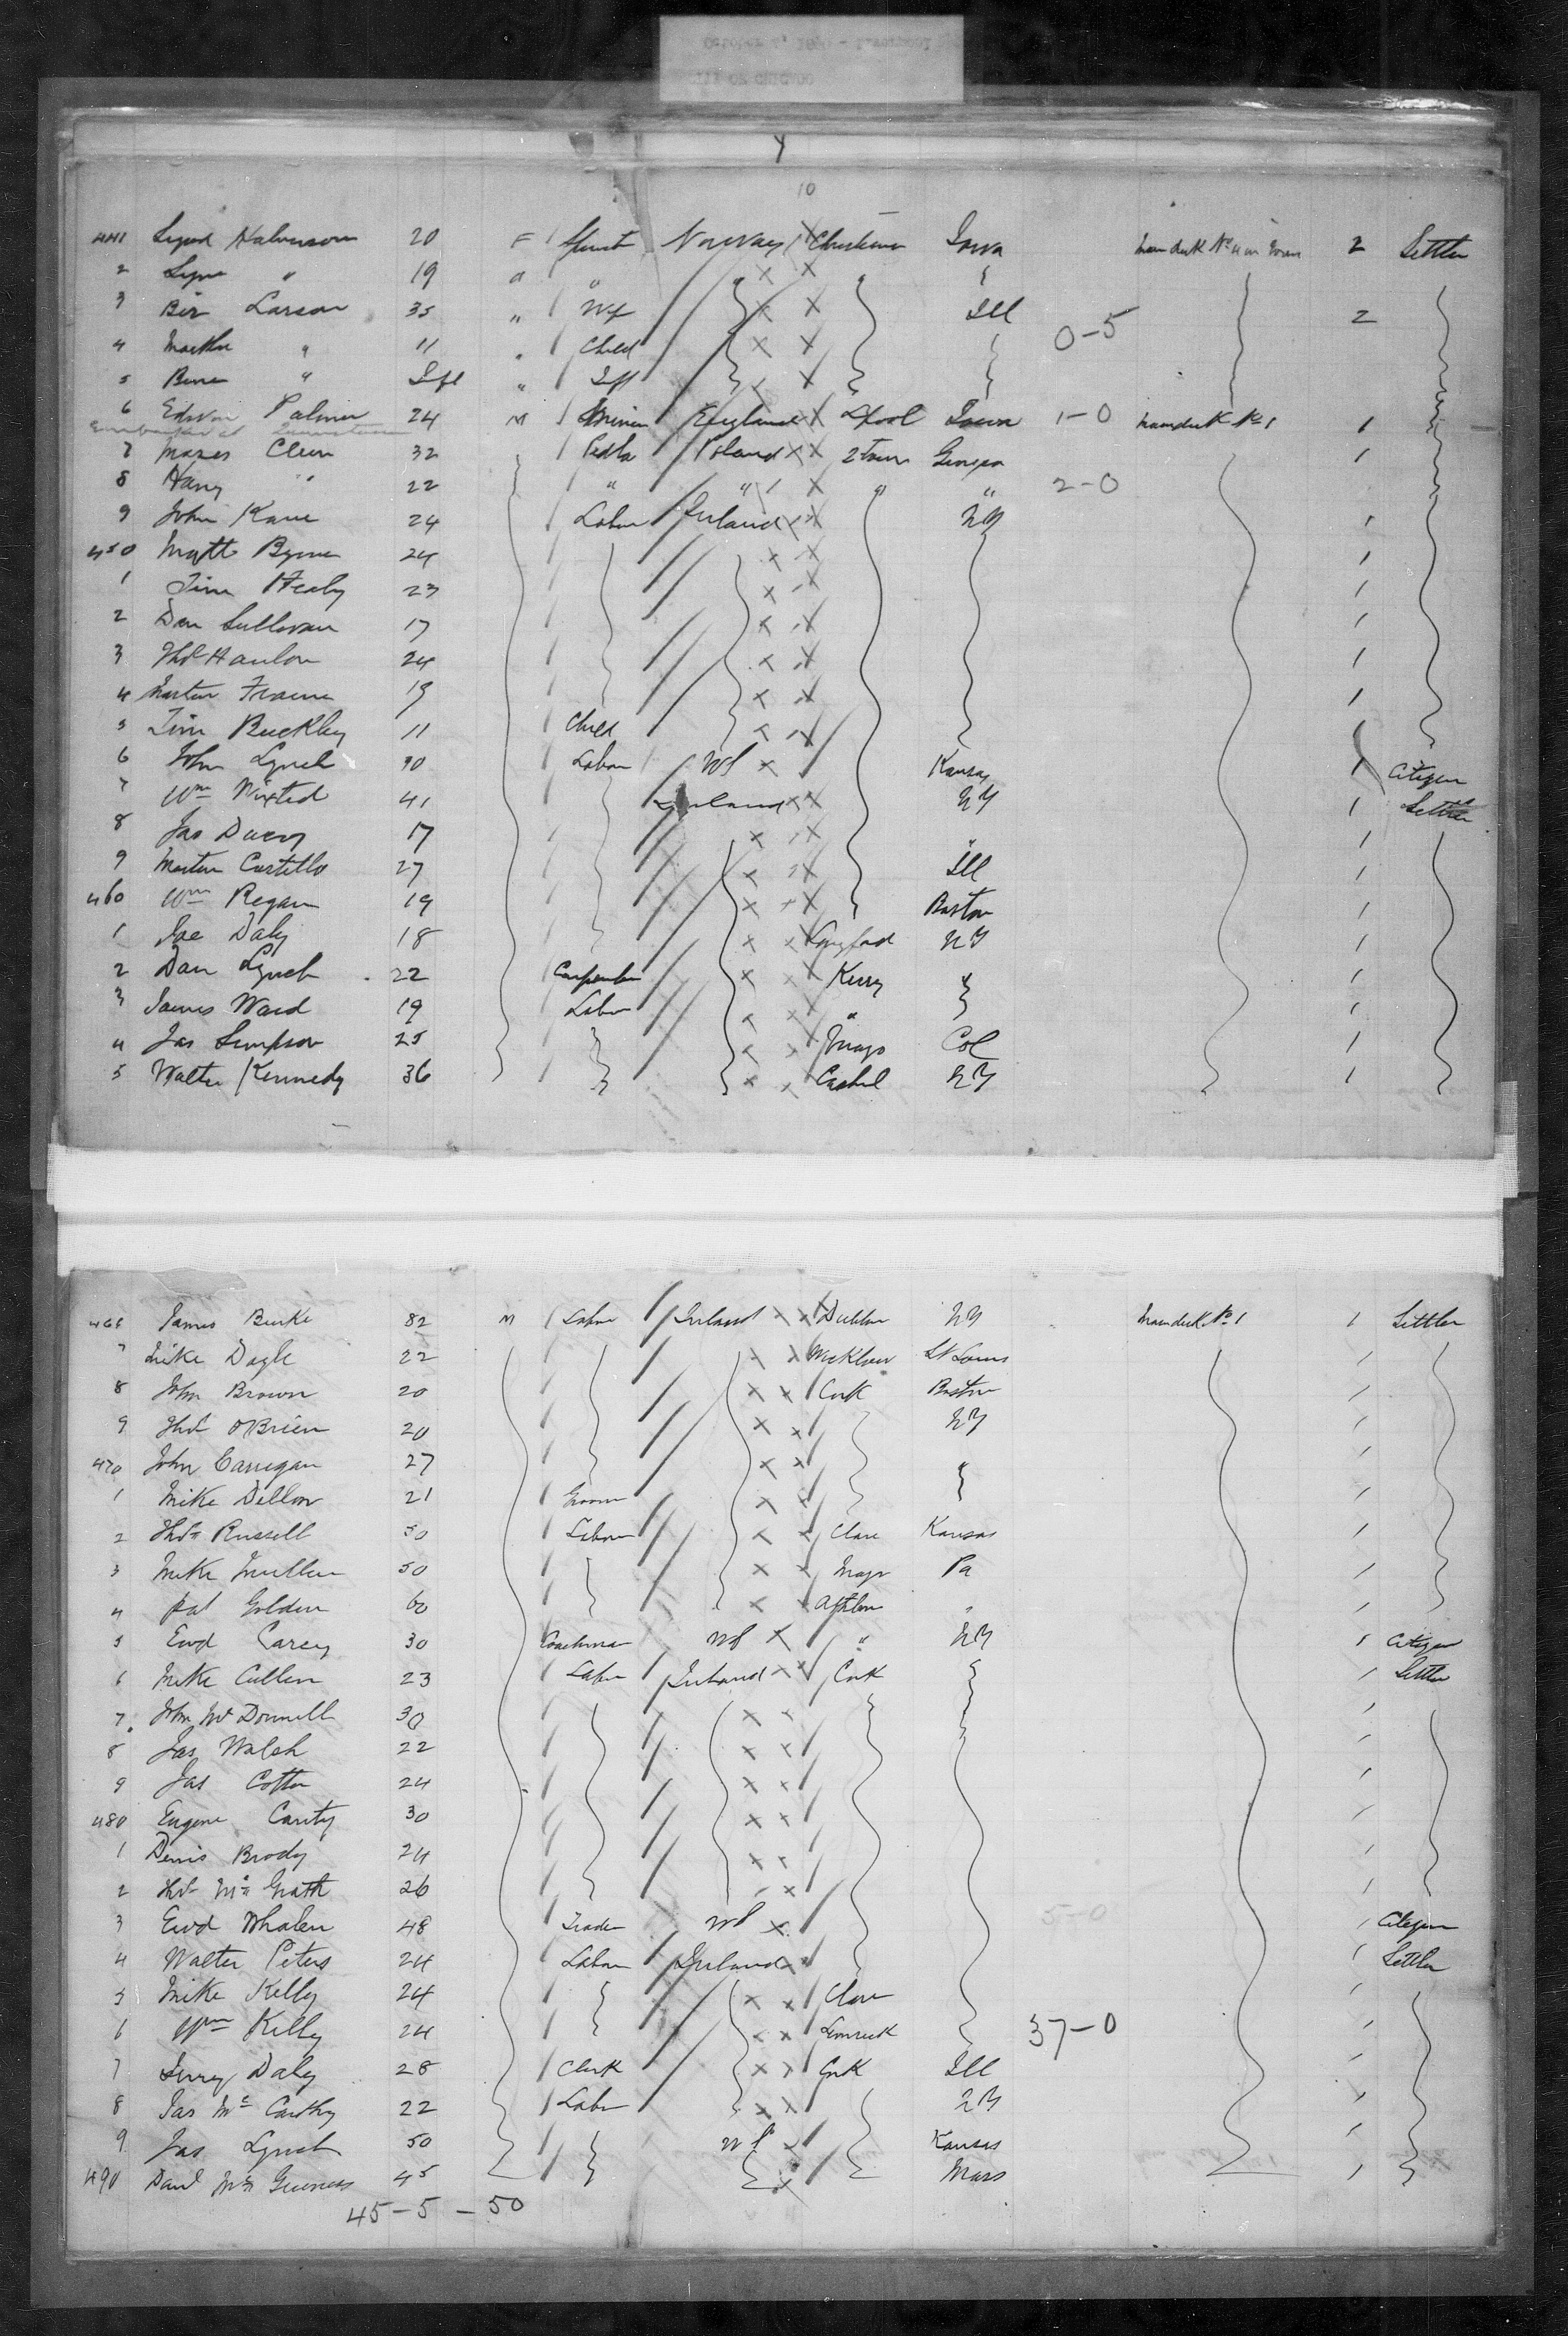 10
441 Halverson 20 F / Norway / Christiania Iowa 2 Settler
2 " 19 "
3 Larson 35 " / Wf Ill 2
0-5
4 Martha " 11 " / Child
5 " Inft " / Inft
6 Palmer 24 M / England Lpool Iowa 1-0 1
Embarked at Queenstown
7 32 / Pedlar Poland Qtown 1
8 Harry " 22 / " " " " 2-0
9 John Kane 24 / Labor Ireland NY 1
450 Matt Byrne 24 / 1
1 Tim Healy 23 / 1
2 Dan Sullivan 17 / 1
3 Thos Hanlon 24 / 1
4 Martin 19 / 1
5 Tim Buckley 11 / Child 1
6 John Lynch 30 / Labor US Kansas 1 Citizen
7 Wm Wixted 41 / Ireland NY 1 Settler
8 Jas 17 / " 1
9 Martin Costello 27 / Ill 1
460 Wm Regan 19 / Boston 1
1 Joe Daly 18 / Longford NY 1
2 Dan Lynch 22 / Carpenter Kerry " 1
3 James Ward 19 / Labor " 1
4 Jas Simpson 25 / Mayo Col 1
5 Walter Kennedy 36 / Cashel NY 1
466 James Burke 32 M / Labor Ireland Dublin NY 1 Settler
7 Mike Doyle 22 / Wicklow St Louis 1
8 John Brown 20 / Cork Boston 1
9 Thos O'Brien 20 / NY 1
470 John Carrigan 27 / " 1
1 Mike Dillon 21 / Groom 1
2 Thos Russell 30 / Labor Clare Kansas 1
3 Mike Mullen 50 / Mayo Pa 1
4 Pat Golden 60 / Athlone " 1
5 Ewd Carey 30 / Coachman US " NY 1 Citizen
6 Mike Cullen 23 / Labor Ireland Cork 1 Settler
7 John McDonnell 30 / 1
8 Jas Walsh 22 / 1
9 Jas Cotter 24 / 1
480 Eugene 30 / 1
1 Denis Brody 24 / 1
2 Thos McGrath 26 / 1
3 Ewd Whalen 48 / Trader US 5-0 1 Citizen
4 Walter Peters 24 / Labor Ireland 1 Settler
5 Mike Kelly 24 / Clare 1
6 Wm Kelly 24 / Limrick 37-0 1
7 Jerry Daly 28 / Clerk Cork Ill 1
8 Jas McCarthy 22 / Labor NY 1
9 Jas Lynch 50 / US Kansas 1
490 45 / Mass 1
45-5-50